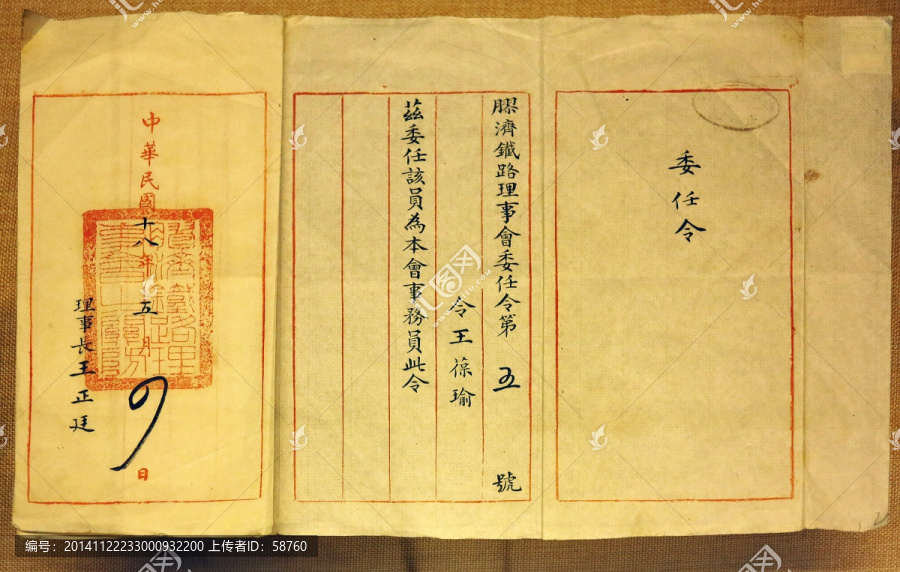 委任令
膠濟鐵路理事會委任令第五號
令王葆瑜
茲委任該員為本會事務員此令
中華民國十八年五月 日
理事長王正廷
编号：20141122233000932200 上传者ID：58760